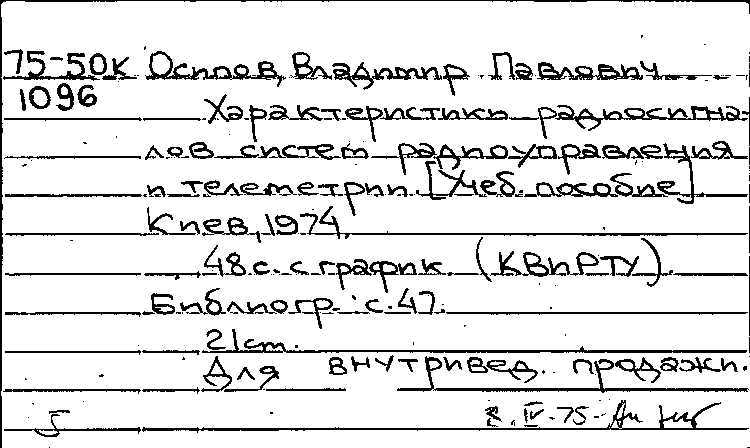 75-50к Осипов, Владимир Павлович
1096
Характеристики радиосигна-
лов систем радиоуправления
и телеметрии. [Учеб. пособие]
Киев, 1974.
48 с. с график. (КВИРТУ).
Библиогр.: с. 47.
21 см.
Для внутривед. продажи.
IV-75